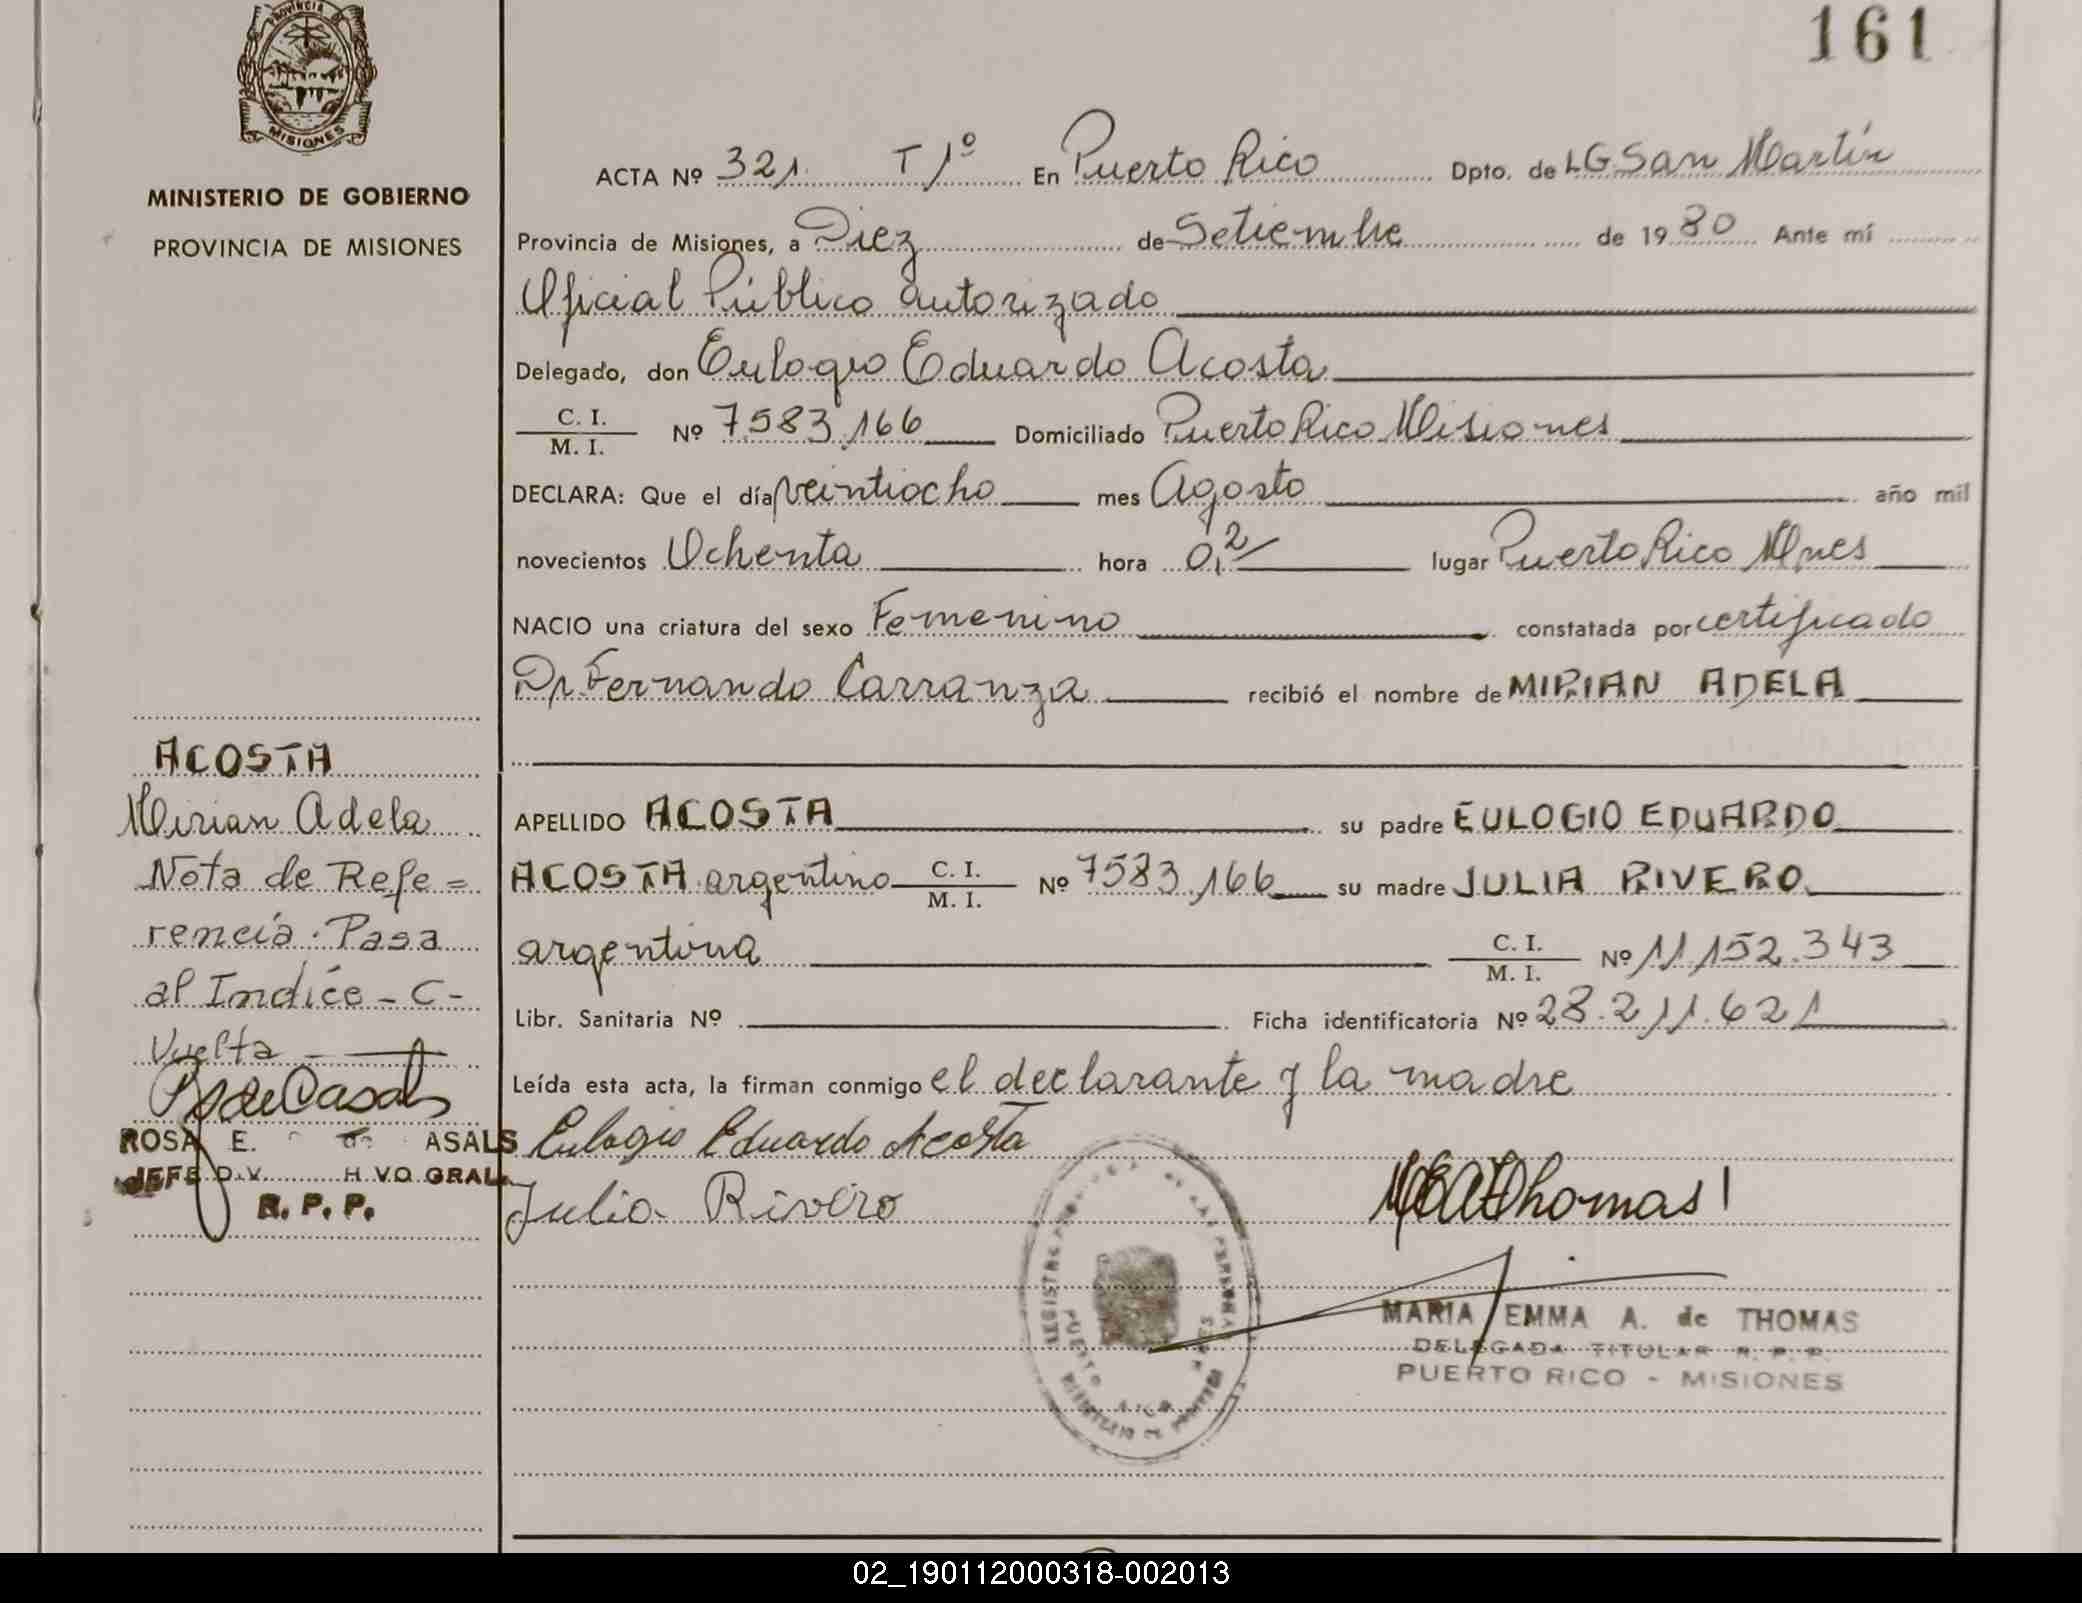 161
PROVINCIA DE
MISIONES
MINISTERIO DE GOBIERNO
PROVINCIA DE MISIONES
ACTA Nº 321 T 1º En Puerto Rico Dpto. de LG San Martín
Provincia de Misiones, a Diez de Setiembre de 1980 Ante mí
Oficial Público autorizado
Delegado, don Eulogio Eduardo Acosta
C. I.
M. I. Nº 7.583.166 Domiciliado Puerto Rico Misiones
DECLARA: Que el día veintiocho mes Agosto año mil
novecientos Ochenta hora 0,2 lugar Puerto Rico Mnes
NACIO una criatura del sexo Femenino constatada por certificado
Dr Fernando Carranza recibió el nombre de MIRIAN ADELA
APELLIDO ACOSTA su padre EULOGIO EDUARDO
ACOSTA argentino C. I. M. I. Nº 7583.166 su madre JULIA RIVERO
argentina C. I. M. I. Nº 11.152.343
Libr. Sanitaria Nº Ficha identificatoria Nº 28.211.621
Leída esta acta, la firman conmigo el declarante y la madre
Eulogio Eduardo Acosta
Julia Rivero
MEAThomas
MARIA EMMA A. de THOMAS
DELEGADA TITULAR R. P. P.
PUERTO RICO - MISIONES
ACOSTA
Mirian Adela
Nota de Refe=
rencia. Pasa
al Indice - C -
Vuelta
ROSA E. de ASALS
JEFE GRAL.
R. P. P.
02_190112000318-002013